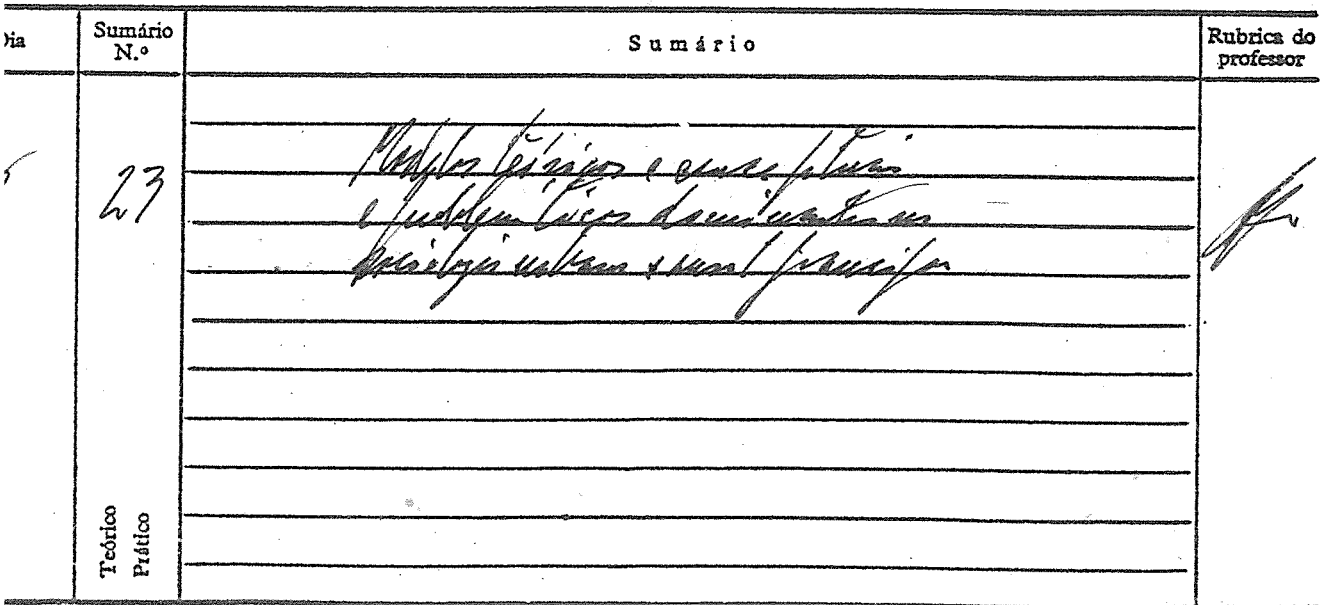 Dia Sumário N.º Sumário Rubrica do professor
23
Modelos teóricos e conceptuais
e problemáticas dominantes na
sociologia urbana e rural francesa
Teórico
Prático